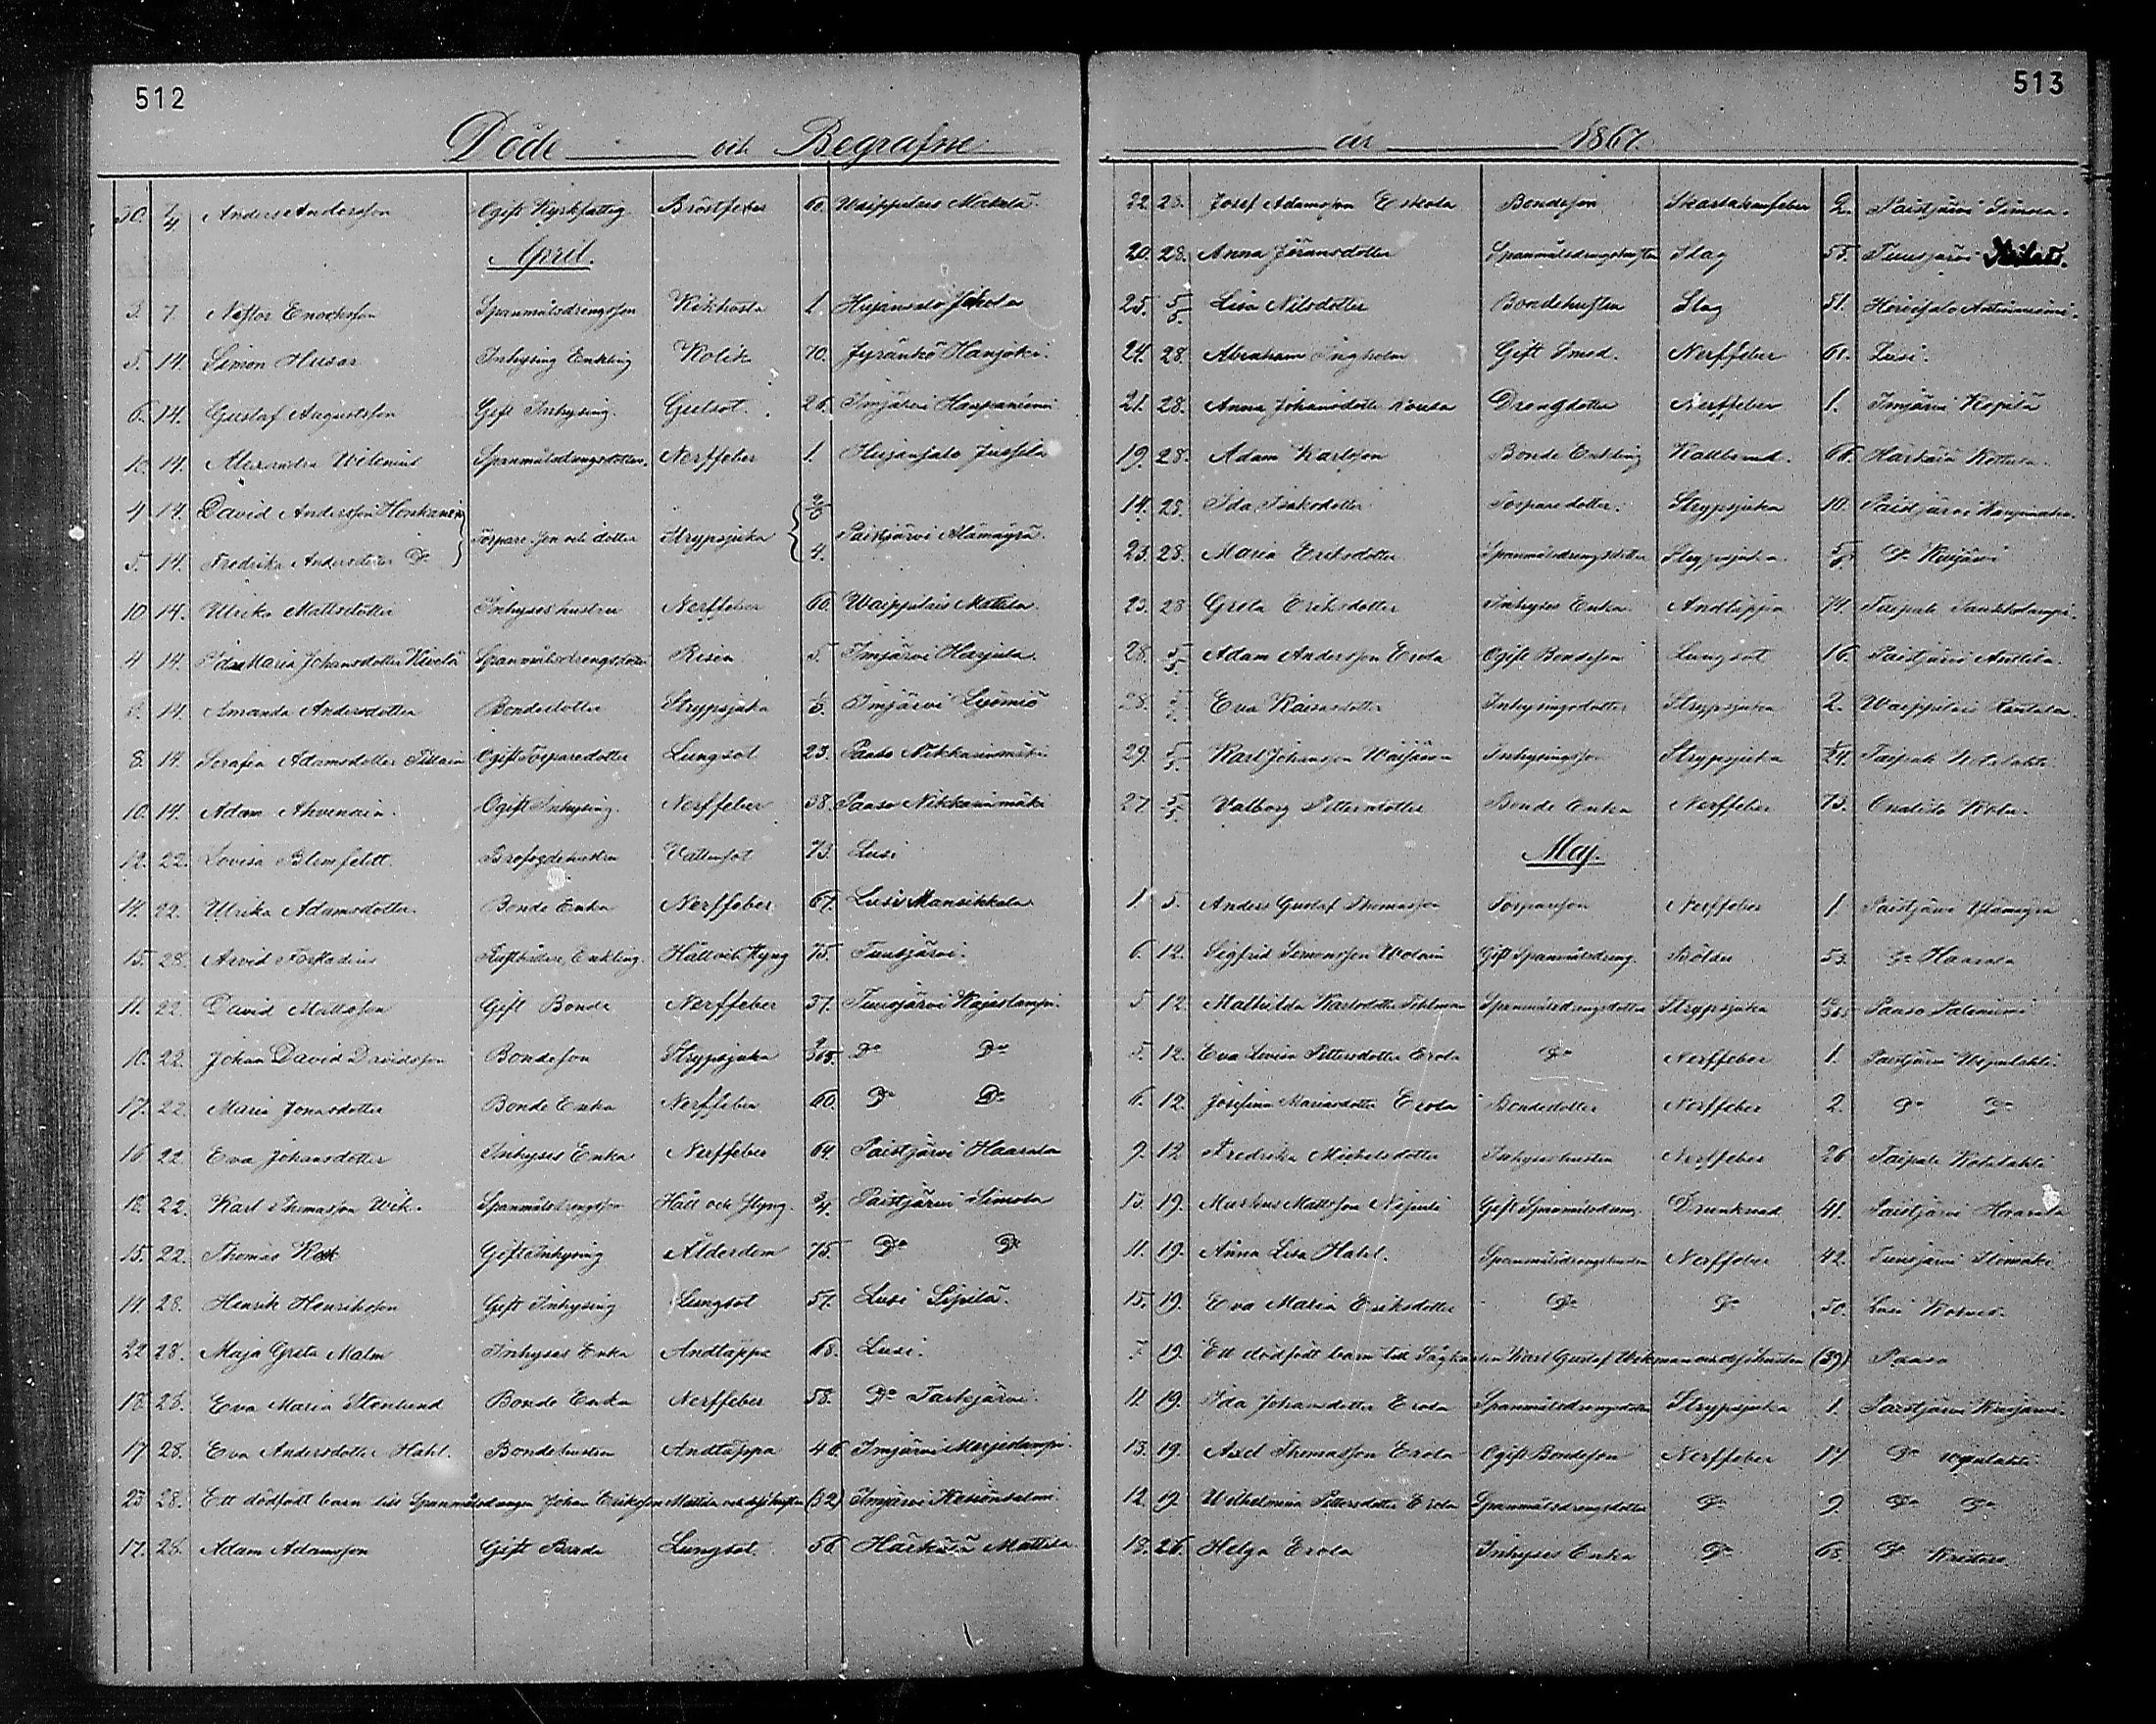 512
Döde och Begrafne
30. 7/4 Anders Andersson Ogift Kyrkfattig Bröstfeber 60. Waippilais Mattila
April.
3. 7. Nestor Enocksson Spanmålsdrengsson Kikhosta 1. Hujansalo Jokola
5. 14. Simon Husar Inhysing Enkling Kolik 70. Jyränkö Hanjoki
6. 14. Gustaf Augustsson Gift Inhysing. Gulsot. 26. Imjärvi Haapaniemi
10. 14. Alexandra Wilenius Spanmålsdrengsdotter. Nerffeber 1. Hujansalo Jussila
4 14. David Andersson Honkanen
Torpare son och dotter Strypsjuka Paistjärvi Alamäyrä.
5. 14. Fredrika Andersdotter Do 4.
10 14. Ulrika Mattsdotter Inhyses hustru Nerffeber 60. Waippilais Mattila.
4 14. Ida Maria Johansdotter Kivelä Spanmålsdrengsdotter Risen 5. Imjärvi Harjula.
8. 14. Amanda Andersdotter Bondedotter Strypsjuka Imjärvi Lyömiö
8. 14. Serafia Adamsdotter Ogift Torparedotter Lungsot 23. Paaso Nikkarinmäki
10. 14. Adam Ahvenain. Ogift Inhysing. Nerffeber 38. Paaso Nikkarinmäki
12. 22. Lovisa Blomfeldt Brofogdehustru Vattusot 73. Lusi
14. 22. Ulrika Adamsdotter Bonde Enka Nerffeber 67. Lusi Mansikkala
15. 28. Arvid Forstadius Enkling. Håll och Styng 75. Tuusjärvi.
11. 22. David Mattsson Gift Bonde Nerffeber 37. Tuusjärvi Kajaslampi.
10. 22. Johan David Davidsson Bondeson Strypsjuka 9/365. Do Do
17. 22. Maria Jonasdotter Bonde Enka Nerffeber 60. Do Do
16 22 Eva Johansdotter Inhyses Enka Nerffeber 64. Paistjärvi Haarala
18. 22. Karl Thomasson Wik. Spanmålsdrengsson Håll och Styng. 3/4. Paistjärvi Simola
15. 22. Thomas Kock Gift Inhysing Ålderdom 75. Do Do
14 28. Henrik Henriksson Gift Inhysing Lungsot 57. Lusi Sipilä.
22 28. Maja Greta Malm Inhyses Enka Andtäppa 68. Lusi.
18. 28. Eva Maria Stenlund Bonde Enka Nerffeber 58. Do Taskjärvi.
17. 28. Eva Andersdotter Hahl. Bondehustru Andtäppa 46. Imjärvi Marjolampi.
23 28. Ett dödfödt barn till Spanmålsdrengen Johan Eriksson Mattila och dess hustru (32) Imjärvi
17. 28. Adam Adamsson Gift Bonde Lungsot. 56 Härkälä Mattila
513
år 1867.
22. 28. Josef Adamsson Eskola Bondeson Skarlakansfeber 2. Paistjärvi Simola.
20. 28. Anna Göransdotter Spanmålsdrengshustru Slag 55. Tuusjärvi
25. 5/5. Lisa Nilsdotter Bondehustru Slag 51.
24. 28. Abraham Gift Smed. Nerffeber 61. Lusi.
21. 28. Anna Johansdotter Drengdotter Nerffeber 1. Imjärvi
19. 28. Adam Karlsson Bonde Enkling Kallbrand. 66. Härkälä Kettula.
14. 28. Ida Isaksdotter Torparedotter. Strypsjuka 10. Paistjärvi
23. 28. Maria Eriksdotter Spanmålsdrengsdotter Strypsjuka Do Kuijärvi
23. 28 Greta Eriksdotter Inhyses Enka. Andtäppa 74. Taipale
28. 5/5. Adam Andersson Erola Ogift Bondeson Lungsot 16. Paistjärvi Anttila.
28. 5/5. Eva Kaisasdotter Inhysingsdotter Strypsjuka 2. Waippilais Rantala.
29. 5/5. Karl Johansson Inhysingsson Strypsjuka Taipale
27 5/5. Valborg Pettersdotter Bonde Enka Nerffeber 73.
Maj.
1 5. Anders Gustaf Thomasson Torparson Nerffeber 1. Paistjärvi Ylämäyrä
6. 12. Sigfrid Simonsson Gift Spanmålsdreng. Bölder 53. Do Haarala
5 12. Mathilda Karlsdotter Spanmålsdrengsdotter Strypsjuka Paaso Paloniemi
5. 12. Eva Lovisa Pettersdotter Erola Do Nerffeber 1. Paistjärvi
6. 12. Josefina Mariasdotter Erola Bondedotter Nerffeber 2. Do Do
9. 12 Fredrika Michelsdotter Inhyses hustru Nerffeber 26 Taipale
13. 19. Markus Mattsson Gift Spanmålsdreng Drunknad 41. Paistjärvi Haarala
11. 19. Anna Lisa Hahl. Spanmålsdrengshustru Nerffeber 42. Tuusjärvi
15. 19. Eva Maria Eriksdotter Do Do 50. Lusi
7. 19. Ett dödfödt barn till Karl Gustaf Wikman och dess hustru (39) Paaso
11 19. Ida Johansdotter Erola Spanmålsdrengsdotter Strypsjuka 1. Paistjärvi Kuijärvi.
13. 19. Axel Thomasson Erola Ogift Bondeson Nerffeber 17 Do
12. 19. Wilhelmina Pettersdotter Erola Spanmålsdrengsdotter Do 9. Do Do
18. 26. Helga Erola Inhyses Enka Do 68. Do